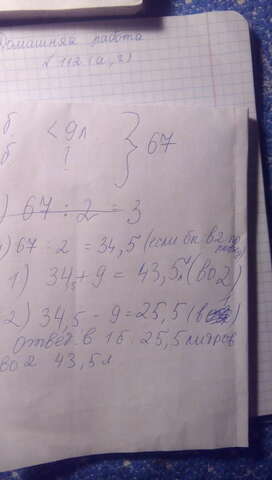 Домашняя работа
№ 112 (а, г)
б < 9л
б ! } 67
) 67 : 2 = 3
) 67 : 2 = 34,5 (если бы в 2 по
1) 34,5 + 9 = 43,5л (во 2)
2) 34,5 - 9 = 25,5 (в
Ответ: в 1б 25,5 литров
во 2 43,5л